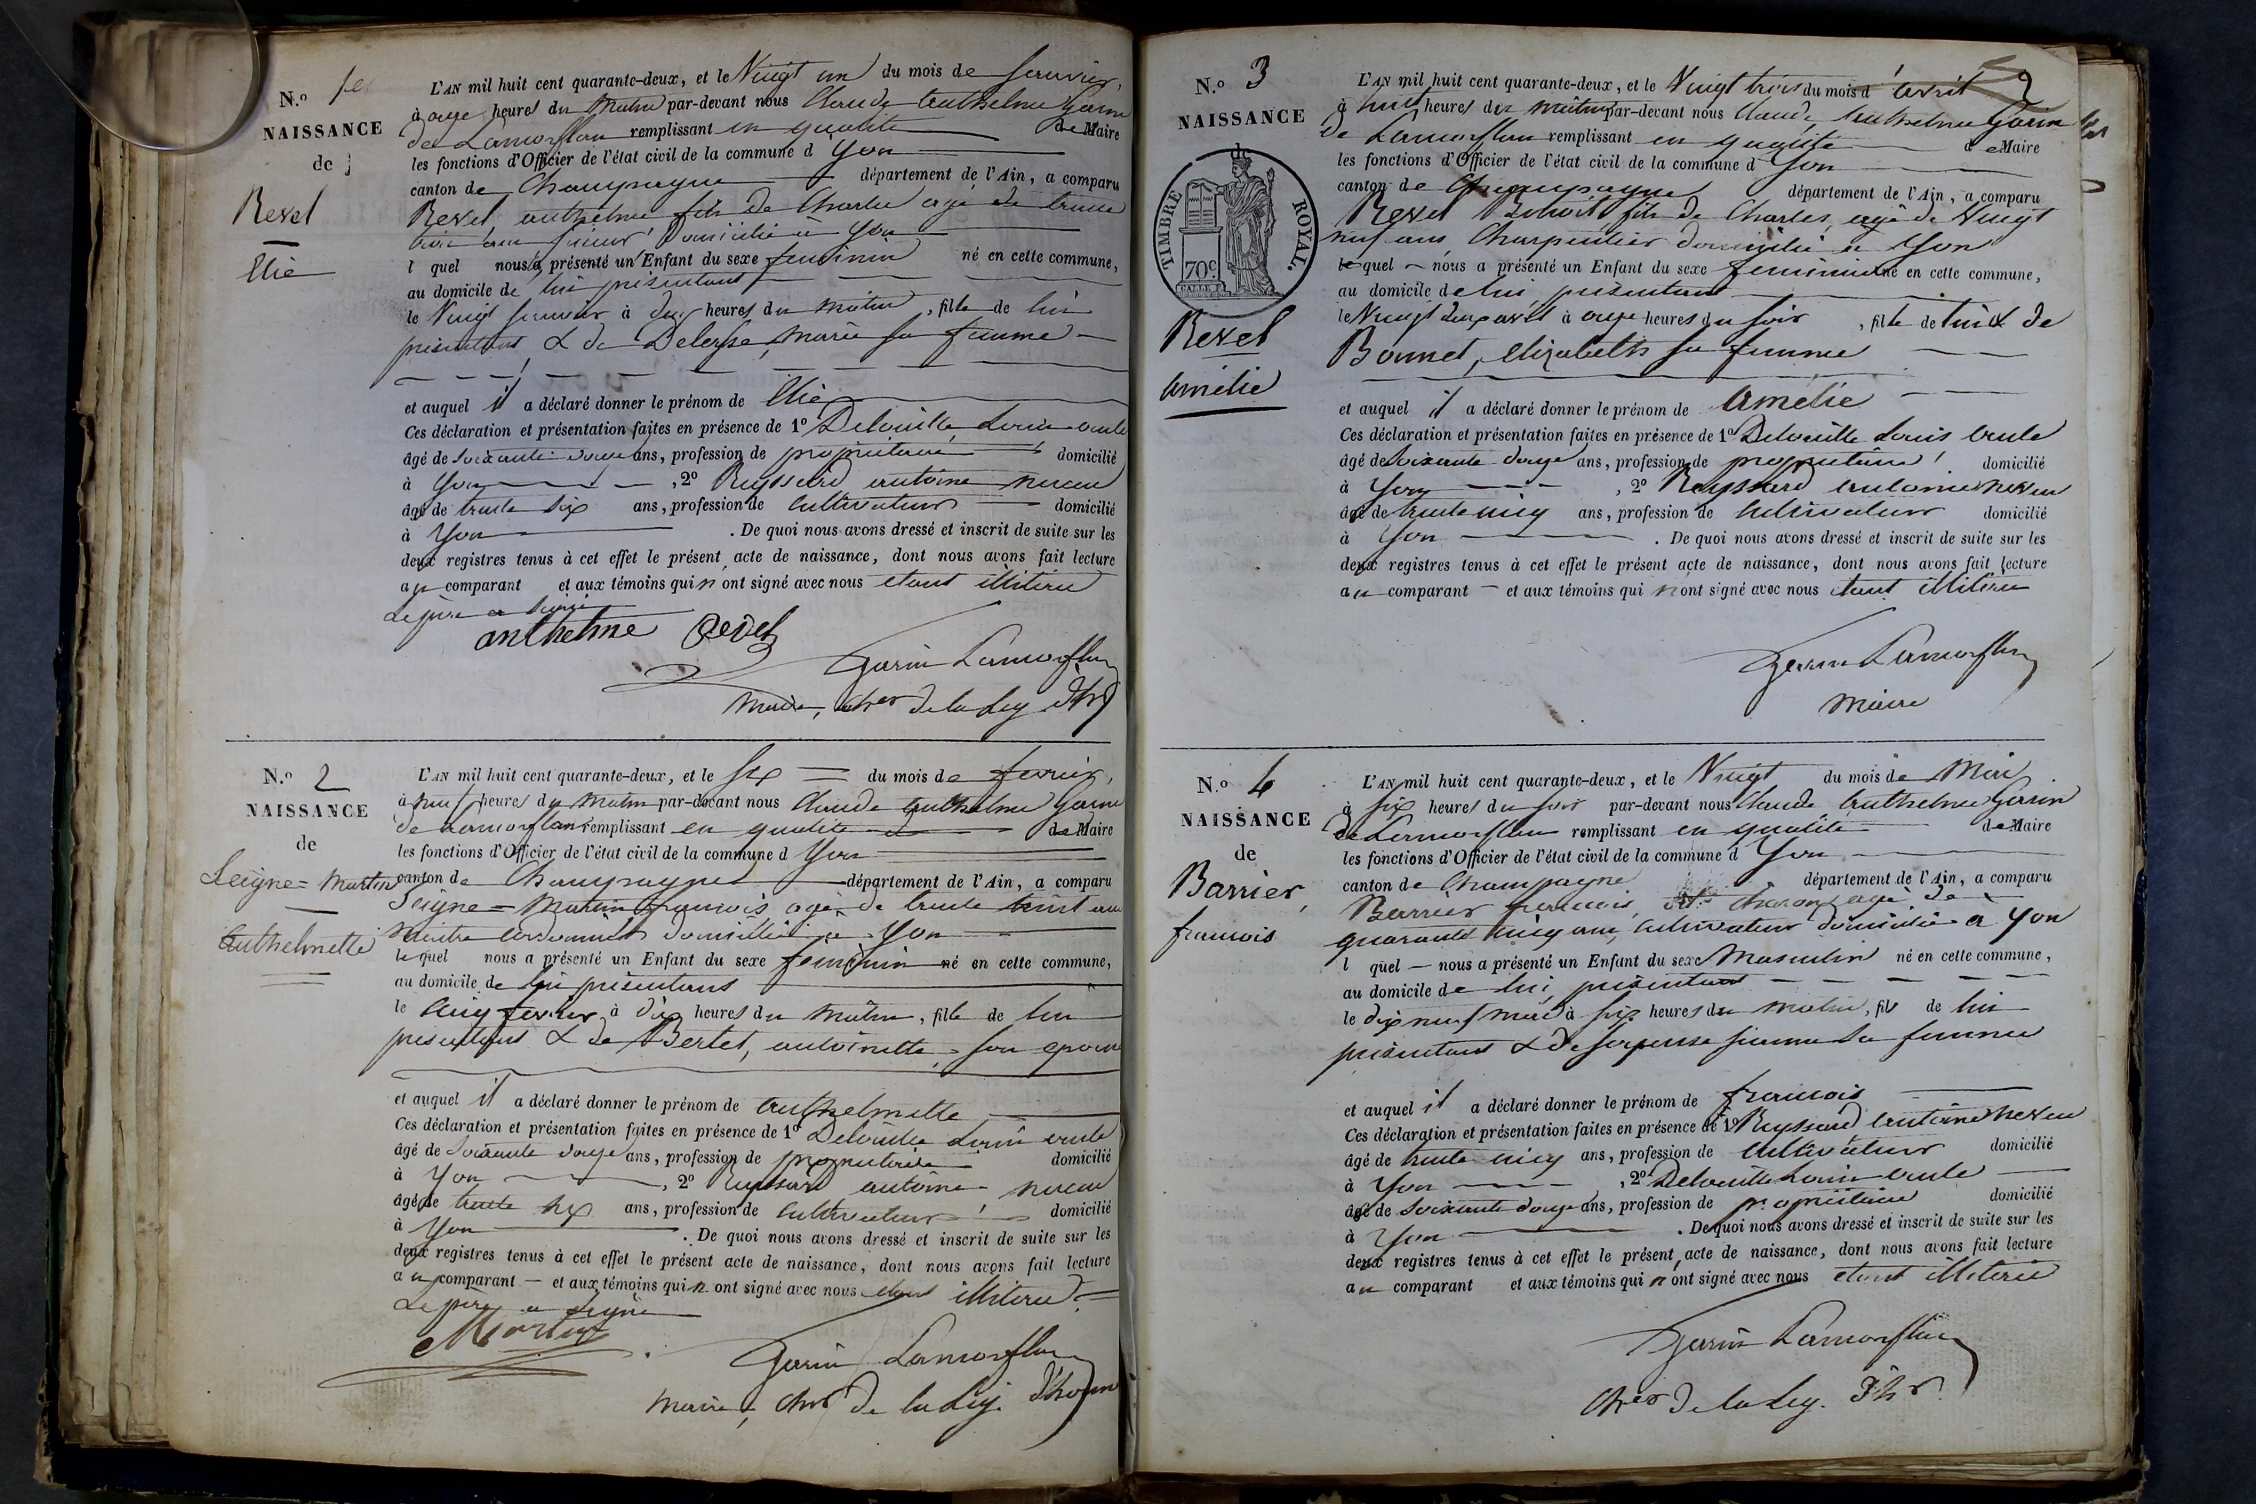 N.o 1er
NAISSANCE
de
Revel
Elie
L'AN mil huit cent quarante-deux, et le Vingt un du mois de Janvier,
à onze heures du Matin par-devant nous Claude Anthelme Garin
de Lamorflan remplissant en qualité de Maire
les fonctions d'Officier de l'état civil de la commune d Yon
canton de Champagne département de l'Ain, a comparu
Revel anthelme fils de Charles agé de trente
trois ans Domicilié à Yon
l quel nous a présenté un Enfant du sexe feminin né en cette commune,
au domicile de lui présentant
le Vingt janvier à dix heures du matin, fille de lui
présentant & de Marie sa femme
et auquel il a déclaré donner le prénom de Elie
Ces déclaration et présentation faites en présence de 1o Delouille Louis
âgé de soixante douze ans, profession de propriétaire domicilié
à Yon, 2o Reyssard antoine neveu
âgé de trente six ans, profession de cultivateur domicilié
à Yon. De quoi nous avons dressé et inscrit de suite sur les
deux registres tenus à cet effet le présent acte de naissance, dont nous avons fait lecture
au comparant et aux témoins qui n'ont signé avec nous etant illiteré
Le père a signé
anthelme Revel
Garin Lamorflan
Maire, cher de la Leg d'hr
N.o 2
NAISSANCE
de
Seigne = Martin
Anthelmette
L'AN mil huit cent quarante-deux, et le six du mois de fevrier,
à neuf heures du Matin par-devant nous Claude Anthelme Garin
de Lamorflan remplissant en qualité de Maire
les fonctions d'Officier de l'état civil de la commune d Yon
canton de Champagne département de l'Ain, a comparu
Seigne = Martin francois agé de trente huit ans
domicilié à Yon
le quel nous a présenté un Enfant du sexe feminin né en cette commune,
au domicile de lui présentant
le cinq fevrier à dix heures du matin, fille de lui
présentant & de Bertet, antoinette, son epouse
et auquel il a déclaré donner le prénom de Anthelmette
Ces déclaration et présentation faites en présence de 1o Delouille Louis
âgé de soixante douze ans, profession de propriétaire domicilié
à Yon, 2o Reyssard antoine neveu
âgé de trente six ans, profession de cultivateur domicilié
à Yon. De quoi nous avons dressé et inscrit de suite sur les
deux registres tenus à cet effet le présent acte de naissance, dont nous avons fait lecture
au comparant et aux témoins qui n'ont signé avec nous etant illiteré
Le père a signé
Martin
Garin Lamorflan
Maire, cher de la Leg. d'honn
N.o 3
NAISSANCE
de
TIMBRE ROYAL.
70c.
Revel
Amélie
L'AN mil huit cent quarante-deux, et le Vingt trois du mois d'Avril
à huit heures du matin par-devant nous Claude Anthelme Garin
de Lamorflan remplissant en qualité de Maire
les fonctions d'Officier de l'état civil de la commune d Yon
canton de Champagne département de l'Ain, a comparu
Revel Benoit fils de Charles, agé de Vingt
neuf ans Charpentier domicilié à Yon
le quel nous a présenté un Enfant du sexe feminin né en cette commune,
au domicile de lui présentant
le Vingt deux avril à onze heures du soir, fille de lui & de
Bonnet, Elizabeth sa femme
et auquel il a déclaré donner le prénom de Amélie
Ces déclaration et présentation faites en présence de 1o Delouille Louis
âgé de soixante douze ans, profession de propriétaire domicilié
à Yon, 2o Reyssard antoine neveu
âgé de trente cinq ans, profession de cultivateur domicilié
à Yon. De quoi nous avons dressé et inscrit de suite sur les
deux registres tenus à cet effet le présent acte de naissance, dont nous avons fait lecture
au comparant et aux témoins qui n'ont signé avec nous etant illiteré
Garin Lamorflan
Maire
N.o 4
NAISSANCE
de
Barrier,
francois
L'AN mil huit cent quarante-deux, et le Vingt du mois de Mai
à six heures du soir par-devant nous Claude Anthelme Garin
de Lamorflan remplissant en qualité de Maire
les fonctions d'Officier de l'état civil de la commune d Yon
canton de Champagne département de l'Ain, a comparu
Barrier francois agé de
quarante cinq ans, cultivateur domicilié à Yon
l quel nous a présenté un Enfant du sexe Masculin né en cette commune,
au domicile de lui présentant
le dix neuf mai à six heures du matin, fils de lui
présentant & de sa femme
et auquel il a déclaré donner le prénom de francois
Ces déclaration et présentation faites en présence de 1o Reyssard antoine neveu
âgé de trente cinq ans, profession de cultivateur domicilié
à Yon, 2o Delouille Louis
âgé de soixante douze ans, profession de propriétaire domicilié
à Yon. De quoi nous avons dressé et inscrit de suite sur les
deux registres tenus à cet effet le présent acte de naissance, dont nous avons fait lecture
au comparant et aux témoins qui n'ont signé avec nous etant illiteré
Garin Lamorflan
cher de la Leg. d'hr.